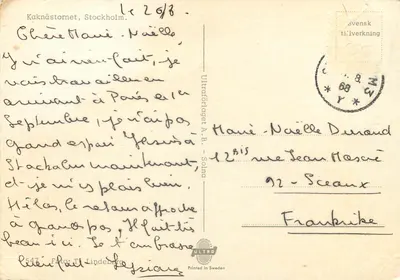 Kaknästornet, Stockholm.
le 26/8.
Chère Marie-Noëlle
je
vais travailler en
arrivant à Paris le 1er
Septembre, je n'ai pas
grand espoir. Je suis à
Stockolm maintenant,
et je m'y plais bien.
Hélas, le retour approche
à grands pas, Il fait très
beau ici. Je t'embrasse
bien fort.
Foto
Ultraförlaget A.B. - Solna
ULTRA
Printed in Sweden
Svensk
tillverkning
68
Marie-Noëlle Durand
12 Bis rue Jean Mascré
92 - Sceaux
Frankrike